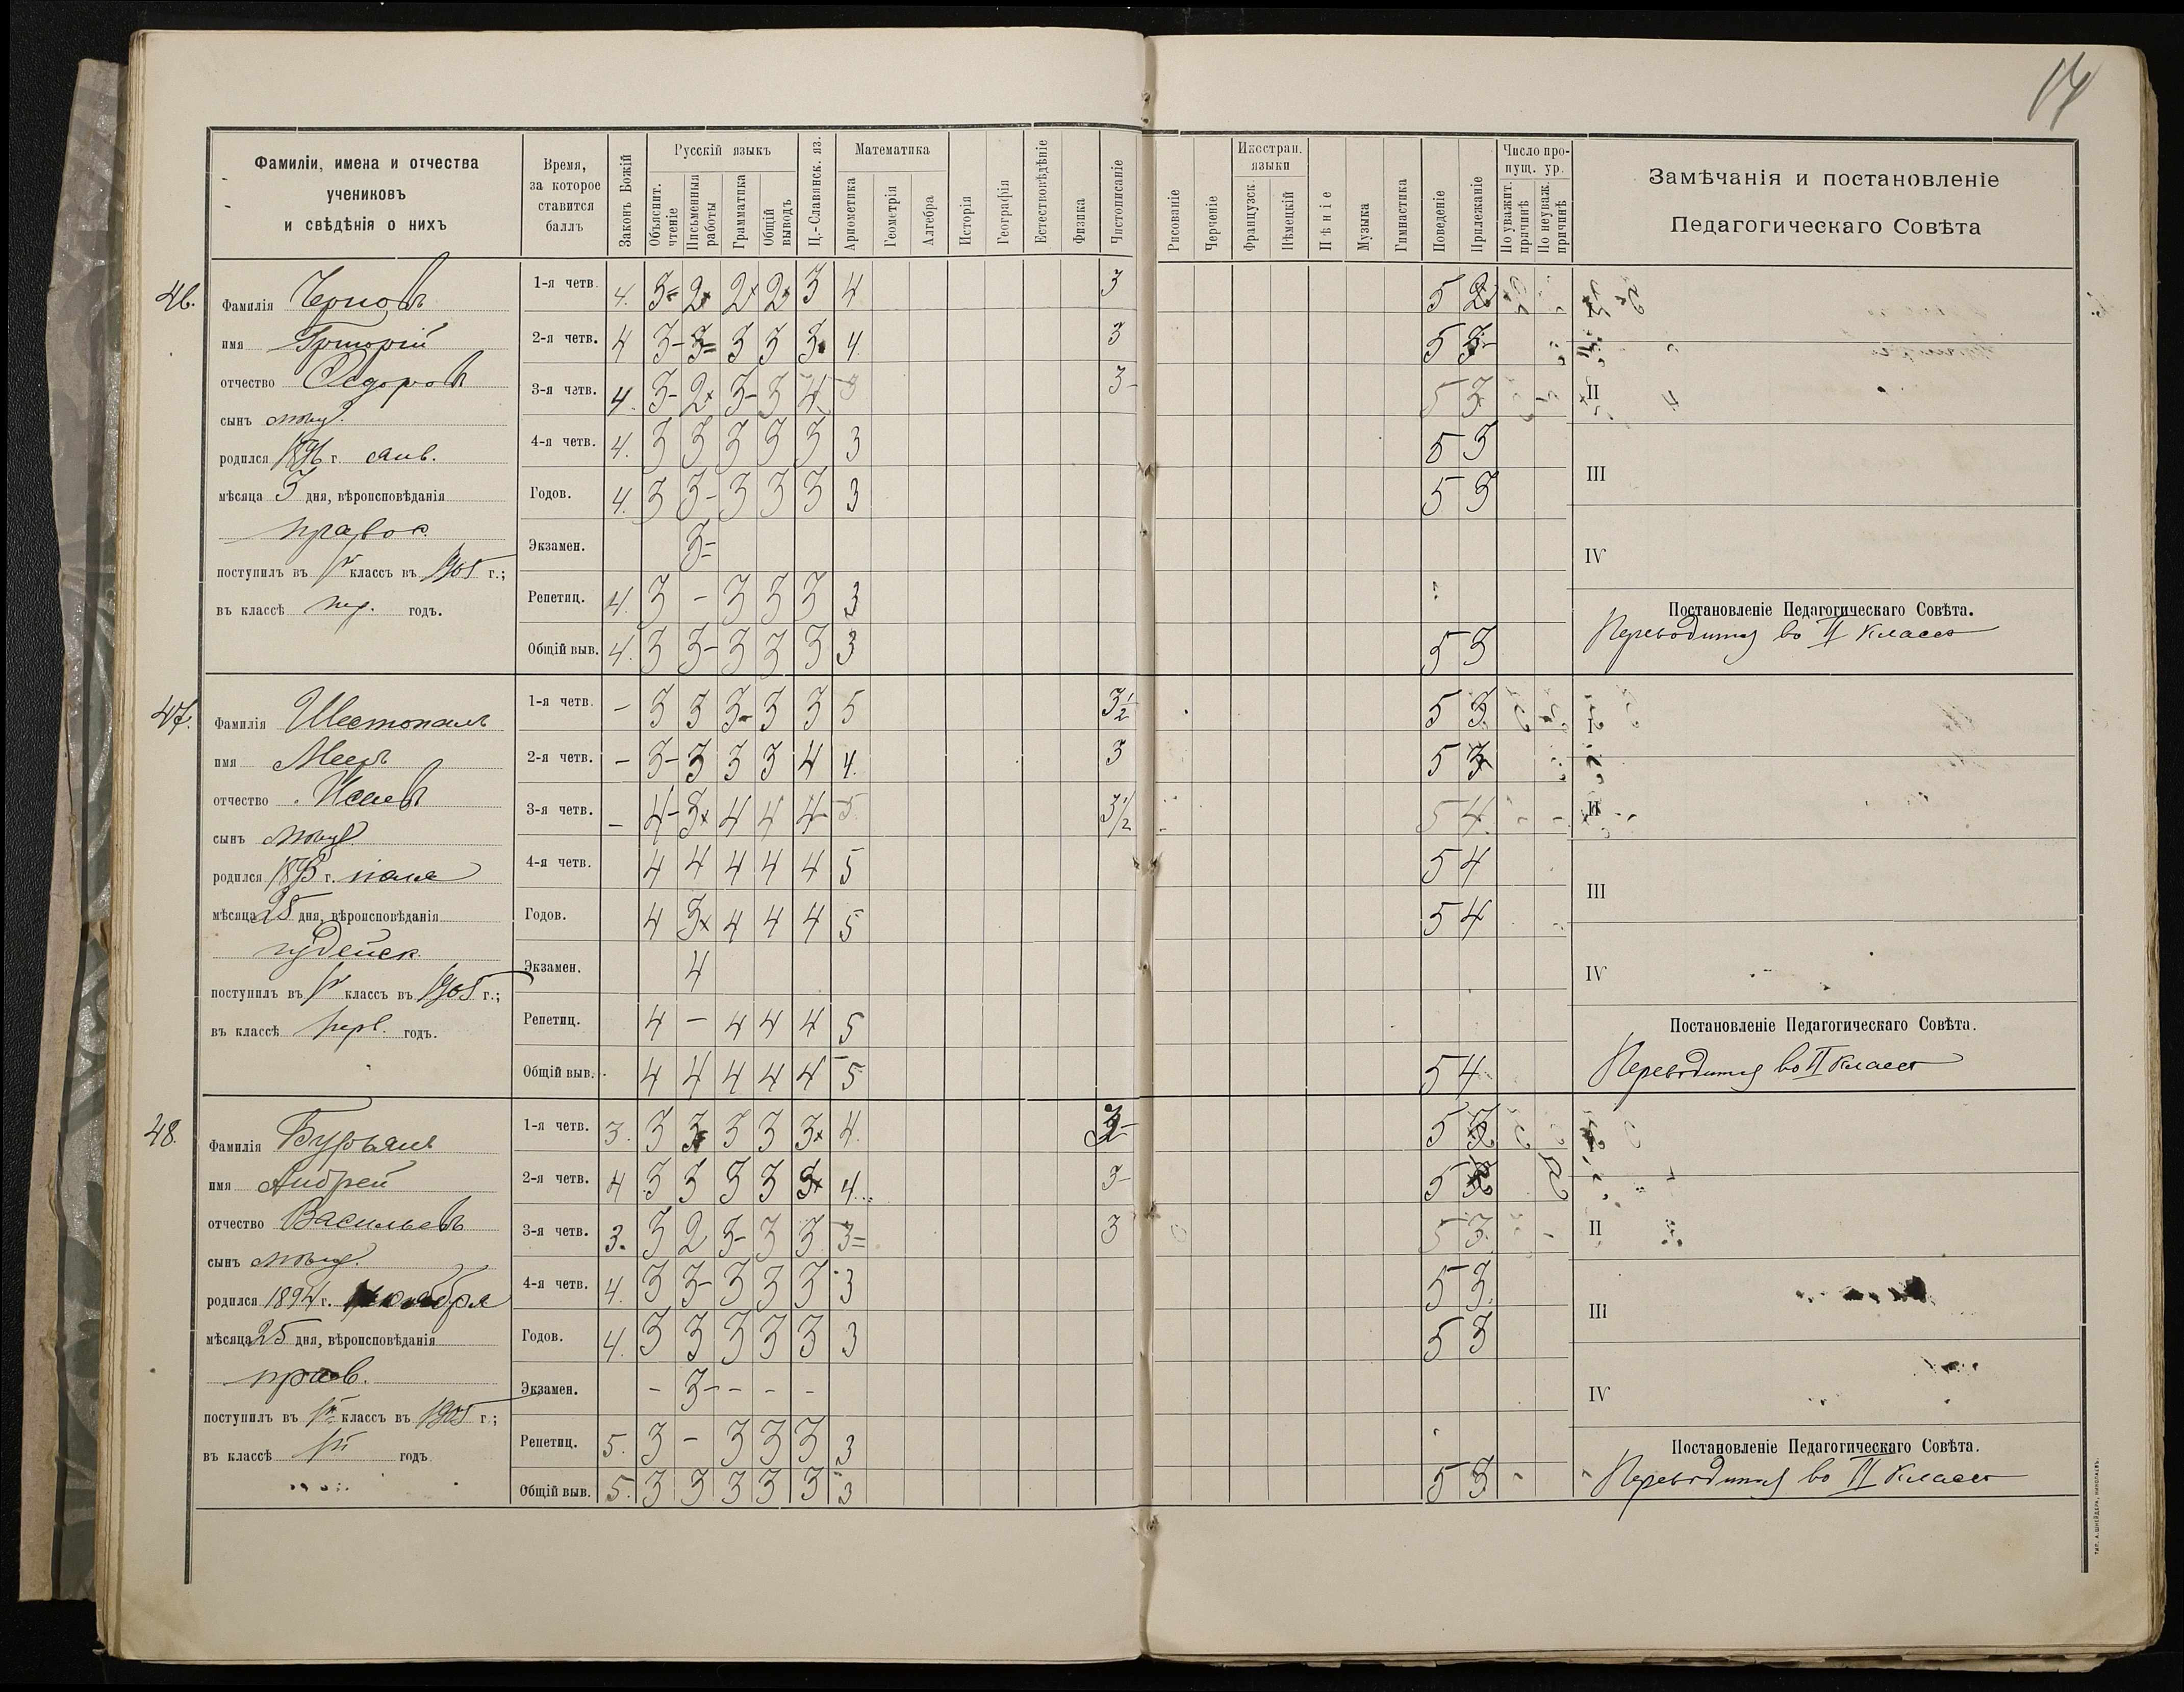 17
Фамиліи, имена и отчества
учениковъ
и свѣдѣнія о нихъ
Время,
за которое
ставится
баллъ
Законъ Божій
Русскій языкъ
Объяснит. чтеніе
Письменныя работы
Грамматика
Общій выводъ
Ц.-Славянск. яз.
Математика
Ариѳметика
Геометрія
Алгебра
Исторія
Географія
Естествовѣдѣніе
Физика
Чистописаніе
Рисованіе
Черченіе
Иностран. языки
Французск.
Нѣмецкій
Пѣніе
Музыка
Гимнастика
Поведеніе
Прилежаніе
Число пропущ. ур.
По уважит. причинѣ
По неуваж. причинѣ
Замѣчанія и постановленіе
Педагогическаго Совѣта
46.
Фамилія Черновъ
имя Григорій
отчество Ѳедоровъ
сынъ мѣщ.
родился 1896 г. янв.
мѣсяца 3 дня, вѣроисповѣданія
правос.
поступилъ въ Iй классъ въ 1905 г.;
въ классѣ пер. годъ.
1-я четв. 4. 3= 2+ 2+ 2+ 3 4 3 5 2
2-я четв. 4 3- 3= 3 3 3 4. 3 5 3-
3-я четв. 4. 3- 2+ 3- 3 4 3 3- 5 3
4-я четв. 4. 3 3 3 3 3 3 5 3
Годов. 4. 3 3- 3 3 3 3 5 3
Экзамен. 3=
Репетиц. 4. 3 - 3 3 3 3
Общій выв. 4. 3 3- 3 3 3 3 5 3
I
II
III
IV
Постановленіе Педагогическаго Совѣта.
Переводится во II классъ
47.
Фамилія Шестопалъ
имя Мееръ
отчество
сынъ мѣщ.
родился 1893 г. іюля
мѣсяца 25 дня, вѣроисповѣданія
іудейск.
поступилъ въ Iй классъ въ 1905 г.;
въ классѣ перв. годъ.
1-я четв. - 3 3 3- 3 3 5 3½ 5 3
2-я четв. - 3- 3 3 3 4 4. 3 5 3
3-я четв. - 4- 3+ 4 4 4- 5 3½ 5 4
4-я четв. 4 4 4 4 4 5 5 4
Годов. 4 3+ 4 4 4 5 5 4
Экзамен. 4
Репетиц. 4 - 4 4 4 5
Общій выв. 4 4 4 4 4 5 5 4
I
II
III
IV
Постановленіе Педагогическаго Совѣта.
Переводится во II классъ
48.
Фамилія Бурьянъ
имя Андрей
отчество Васильевъ
сынъ мѣщ.
родился 1894 г. октября
мѣсяца 25 дня, вѣроисповѣданія
прав.
поступилъ въ Iй классъ въ 1905 г.;
въ классѣ Iй годъ
1-я четв. 3. 3 3 3 3 3+ 4. 3- 5 3
2-я четв. 4 3 3 3 3 3+ 4. 3- 5
3-я четв. 3. 3 2 3- 3 3 3= 3 5 3
4-я четв. 4. 3 3- 3 3 3 3 5 3
Годов. 4. 3 3 3 3 3 3 5 3
Экзамен. - 3- - - -
Репетиц. 5. 3 - 3 3 3 3
Общій выв. 5. 3 3 3 3 3 3 5 3
II
III
IV
Постановленіе Педагогическаго Совѣта.
Переводится во II классъ
Тип. А. Шнейдера, Николаевъ.